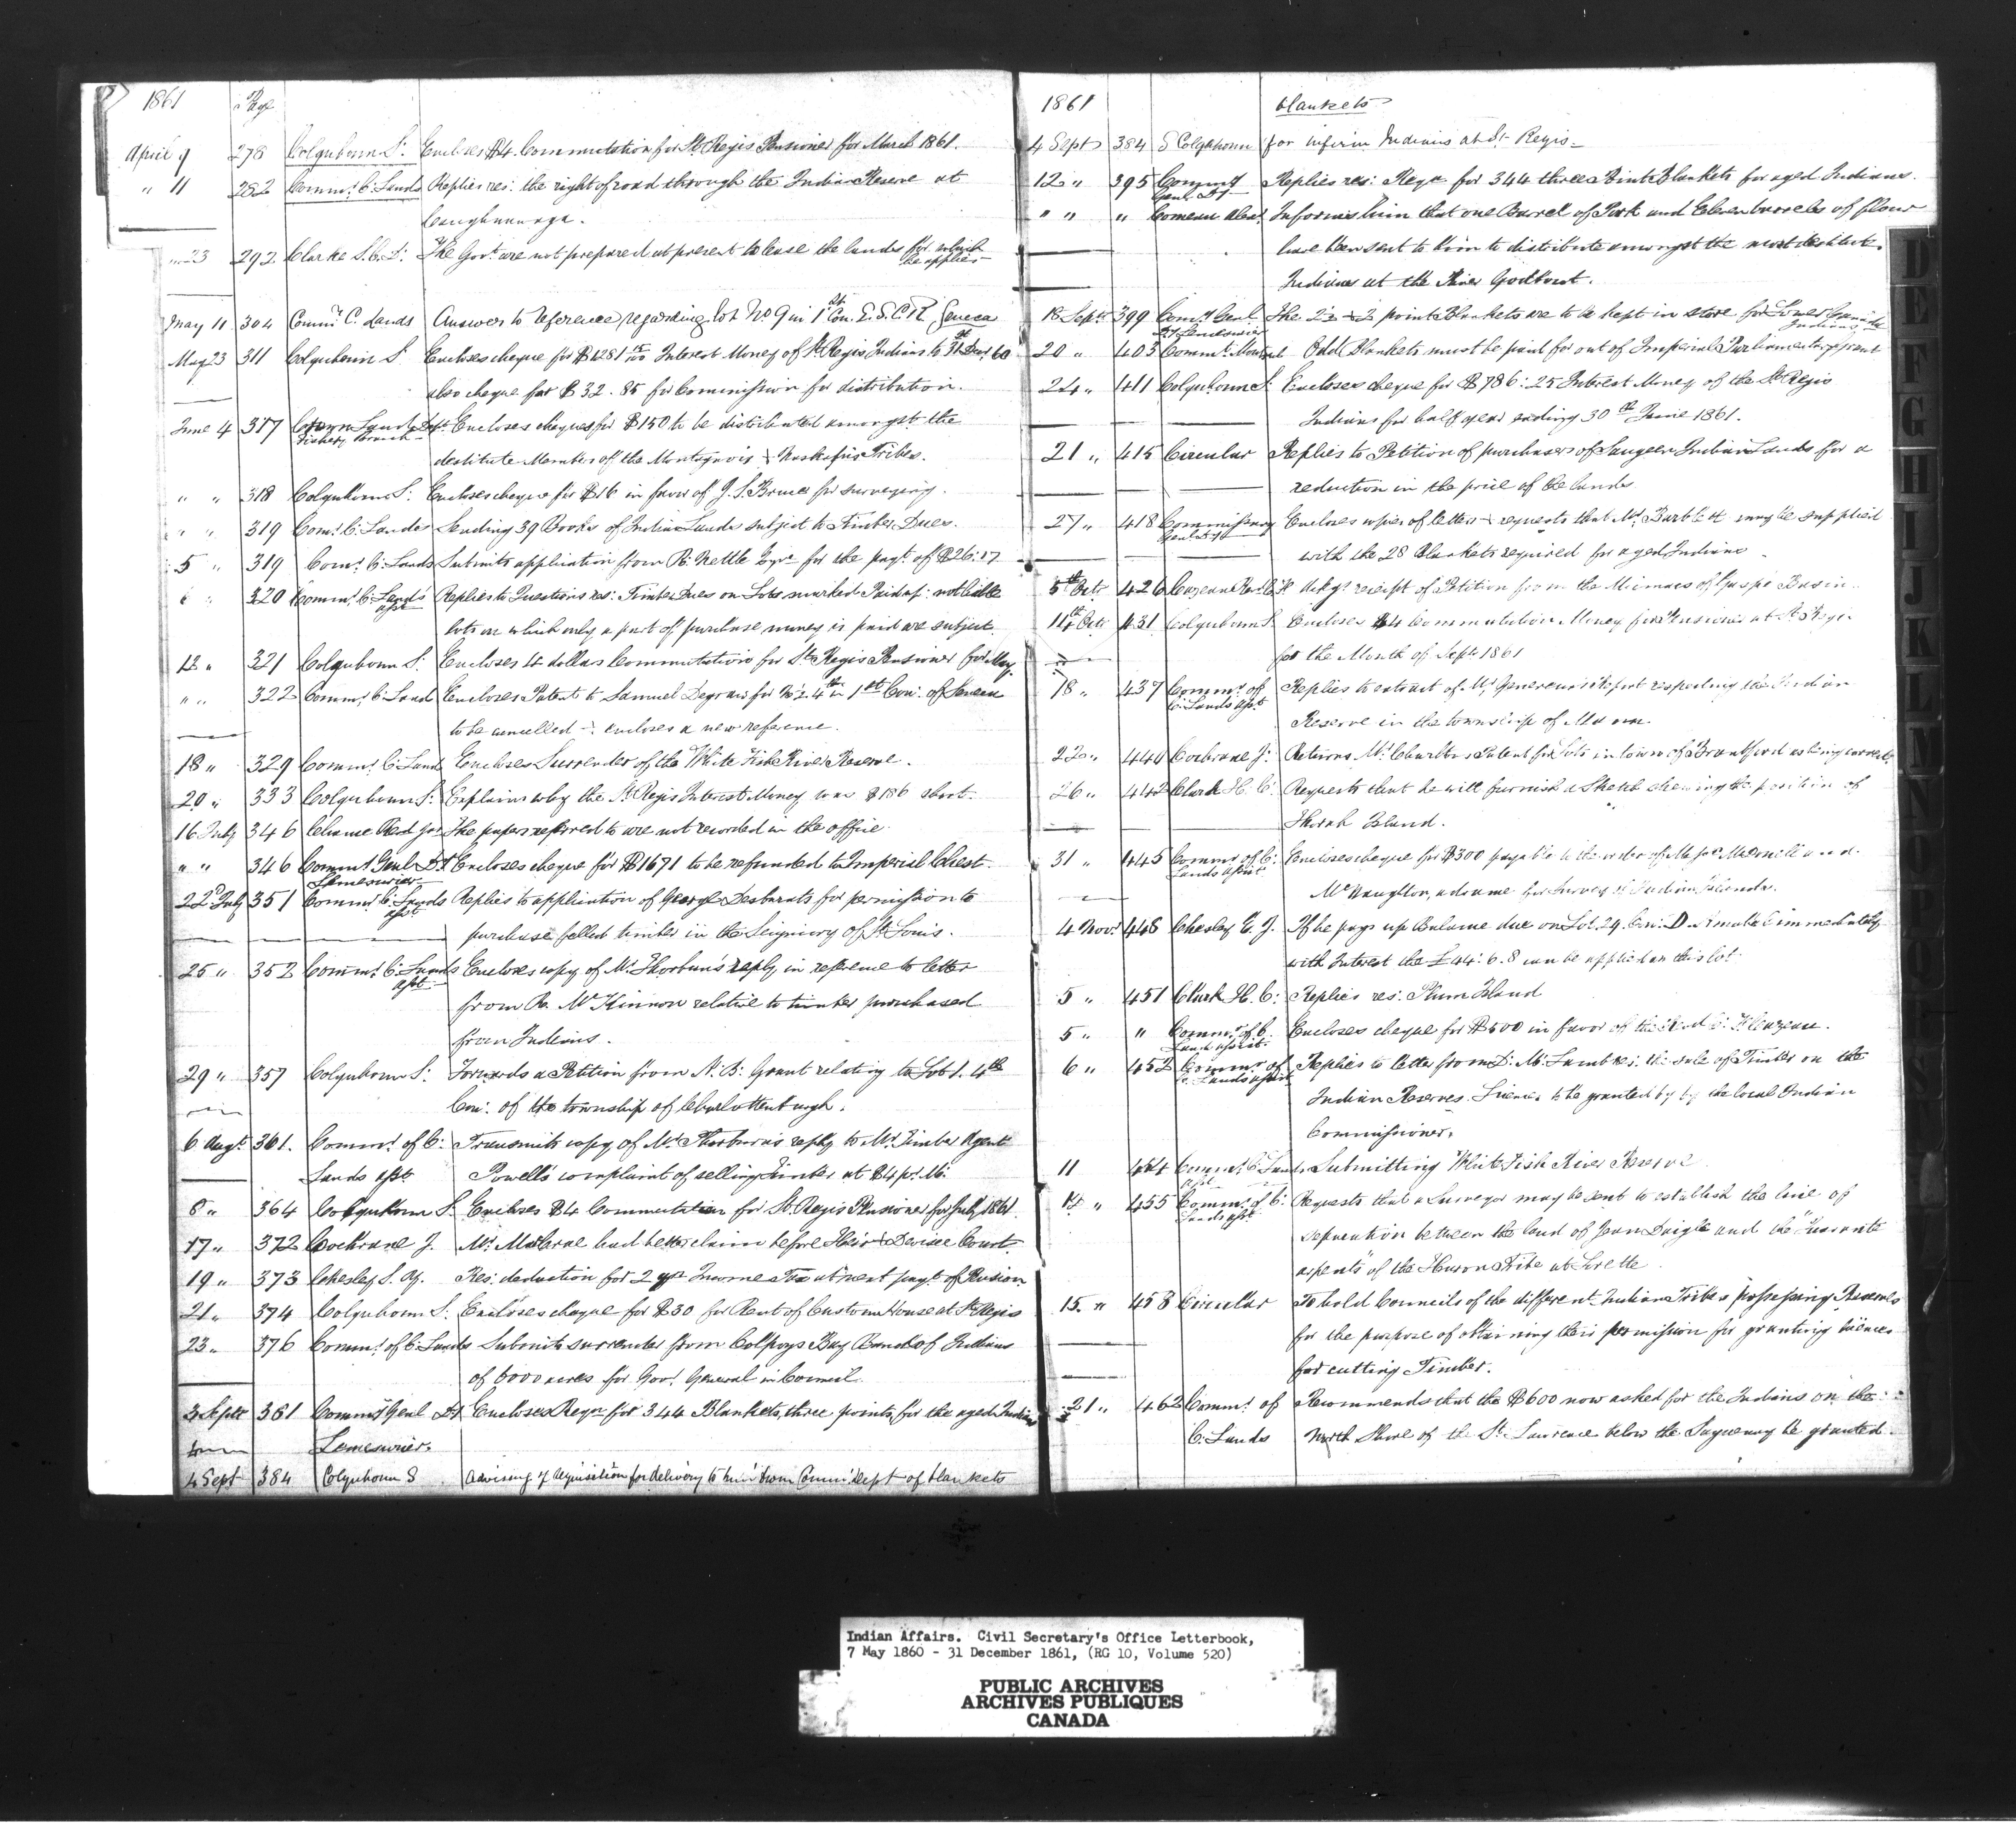 1861 Page
April 9 278 Colquhoun S. Encloses $4. Commutation for St. Regis Pensioner for March 1861.
" 11 282 Commr. C. Lands Replies res: the right of road through the Indian Reserve at
Caughnawaga.
" 23 292 Clarke S. C. The Govt. are not prepared at present to lease the lands for which
he applies
May 11 304 Commr. C. Lands Answer to reference regarding lot No 9 in 1st Con. E. S. C. R. Seneca
May 23 311 Colquhoun S. Encloses cheque for $1281 Interest Money of St. Regis Indians to 31 Decr 60
also cheque for $32.85 for Commission for distribution.
June 4 317 Crown Lands Dept. Encloses cheques for $150 to be distributed amongst the
Fishery Branch
destitute Members of the Montagnais & Naskapis Tribes.
" " 318 Colquhoun S. Encloses cheque for $16 in favor of J. S. Bruce for surveying.
" " 319 Comr. C. Lands Sending 39 Books of Indian Lands subject to Timber Dues.
5 " 319 Comr. C. Lands Submits application from R. Nettle Esqr. for the payt. of $26:17
" " 320 Commr. C. Lands Replies to Questions res: Timber Dues on Lots marked Paid up: not liable
lots on which only a part of purchase money is paid are subject.
12 " 321 Colquhoun S: Encloses 4 dollars Commutation for St. Regis Pensioner for May.
" " 322 Commr. C. Land Encloses Patent to Samuel for 4th in 1st Con: of Seneca
to be cancelled & encloses a new reference.
18 " 329 Commr. C. Land Encloses Surrender of the White Fish River Reserve.
20 " 333 Colquhoun S: Explains why the St. Regis Interest Money was $186 short.
16 July 346 The papers referred to are not recorded in the office
" " 346 Commy Genl Dt. Encloses cheque for $1671 to be refunded to Imperial Chest.
Lamesurier
22d July 351 Commr. C. Lands Replies to application of George Desbarats for permission to
purchase felled timber in the Seigniory of St. Louis.
25 " 352 Commr. C. Lands Encloses copy of Mr. Thorburn's reply in reference to letter
from R. McKinnon relative to timber purchased
from Indians.
29 " 357 Colquhoun S: Forwards a Petition from N. B. Grant relating to Lot 1. 4th
Con: of the township of Charlottenburgh.
6 Augt. 361. Commr. of C: Transmits copy of Mr. Thorburn's reply to Mr. Timber Agent
Lands Powell's complaint of selling Timber at $4 pr. M.
8 " 364 Colquhoun S. Encloses $4 Commutation for St. Regis Pensioner for July 1861
17 " 372 Cochrane J. Mr. had better claim before Heir & Devisee Court.
19 " 373 Chesley S. Y. Res: deduction for 2 yrs Income Tax at next payt. of Pension
21 " 374 Colquhoun S. Encloses cheque for $30 for Rent of Custom House at St. Regis
23 " 376 Commr. of C. Lands Submits surrender from Colpoys Bay Band of Indians
of 6000 acres for Govr. General in Council.
3 Septr 381 Commy Genl Dt. Encloses Reqn for 344 Blankets, three points, for the aged Indians
Lamesurier.
4 Sept 384 Colquhoun S Advising of requisition for delivery to him from Commt Dept of blankets
1861 blankets
4 Sept 384 S Colquhoun for infirm Indians at St. Regis
12 " 395 Commy Replies res: Reqn for 344 three Point Blankets for aged Indians.
Genl. Dt
" " " Comeau Alexr. Informs him that one Barrel of Pork and Eleven barrels of flour
have been sent to him to distribute amongst the most destitute
Indians at the River Godbout.
18 Septr 399 Comy Genl The 2½ & 2 points Blankets are to be kept in store for Lower Canada
Indians
20 " 403 Odd Blankets must be paid for out of Imperial Parliamentary grant
24 " 411 Colquhoun S: Encloses cheque for $786:25 Interest Money of the St. Regis
Indians for half year ending 30th June 1861.
21 " 415 Circular Replies to Petition of purchasers of Saugeen Indian Lands for a
reduction in the price of the lands
27 " 418 Commissary Encloses copies of letters & requests that Mr. may be supplied
with the 28 blankets required for aged Indians
5th Octr 426 Ackgs receipt of Petition from the Micmacs of Gaspé Basin
14th Octr 431 Colquhoun S. Encloses $4 Commutation Money for Pensioner at St. Regis
for the Month of Septr 1861
18 " 437 Commr. of Replies to extract of Mr. report respecting the Indian
C. Lands
Reserve in the township of
22 " 440 Cochrane J: Returns Mr. Charlton's Patent for lots in town of Brantford as being correct.
26 " 442 Clark H. C: Requests that he will furnish a Sketch shewing the position of
Thorah Island.
31 " 445 Commr of C. Encloses cheque for $300 payable to the order of
Lands
McNaughton, advance for Survey of Indian Islands.
4 Novr. 448 Chesley E. J. If he pays up Balance due on Lot 24 Con: D. immediately
with Interest the £44:6.8 can be applied on this lot.
5 " 451 Clark H. C: Replies res: Plum Island
5 " " Commr. of C. Encloses cheque for $500 in favor of the
6 " 452 Commr. of Replies to letter from res: the sale of Timber on the
C. Lands
Indian Reserves. Licenses to be granted by the local Indian
Commissioner.
11 454 Commr. C. Lands Submitting White Fish River Reserve
14 " 455 Commr. of C: Requests that a Surveyor may be sent to establish the line of
Lands
separation between the land of Jean Daigle and the "Quarante
arpents" of the Huron Tribe at Lorette
15 " 458 Circular To hold Councils of the different Indian Tribes possessing Reserves
for the purpose of obtaining their permission for granting licences
for cutting Timber.
21 " 462 Commr. of Recommends that the $600 now asked for the Indians on the
C. Lands North Shore of the St. Lawrence below the Saguenay be granted.
D
E
F
G
H
I
J
K
L
M
N
O
P
Q
R
S
Indian Affairs. Civil Secretary's Office Letterbook,
7 May 1860 - 31 December 1861, (RG 10, Volume 520)
PUBLIC ARCHIVES
ARCHIVES PUBLIQUES
CANADA